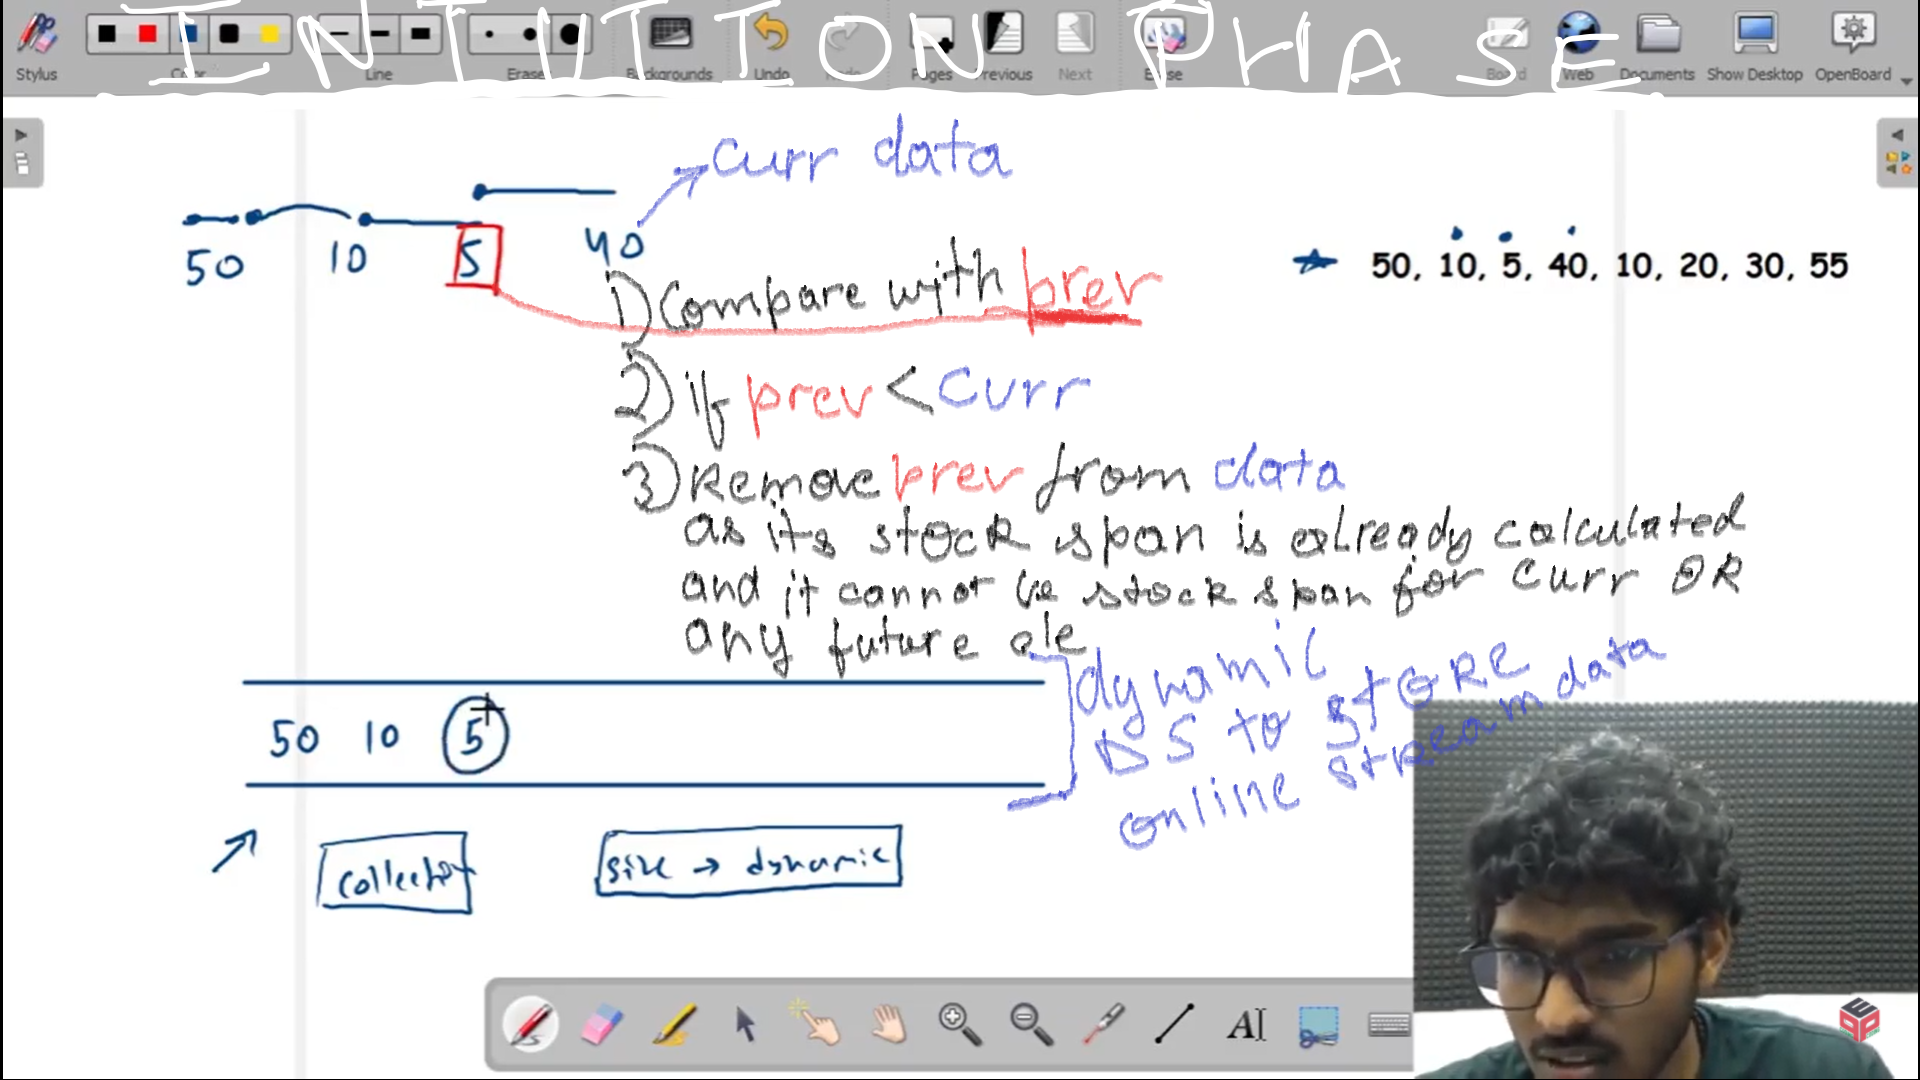 INTUITION PHASE
Stylus Color Line Eraser Backgrounds Undo Redo Pages Previous Next Erase Board Web Documents Show Desktop OpenBoard
curr data
50 10 5 40
50, 10, 5, 40, 10, 20, 30, 55
1) Compare with prev
2) if prev < curr
3) Remove prev from data
as its stock span is already calculated
and it cannot be stock span for curr OR
any future ele
dynamic
DS to STORE
online stream data
50 10 5
collection
size → dynamic
AI